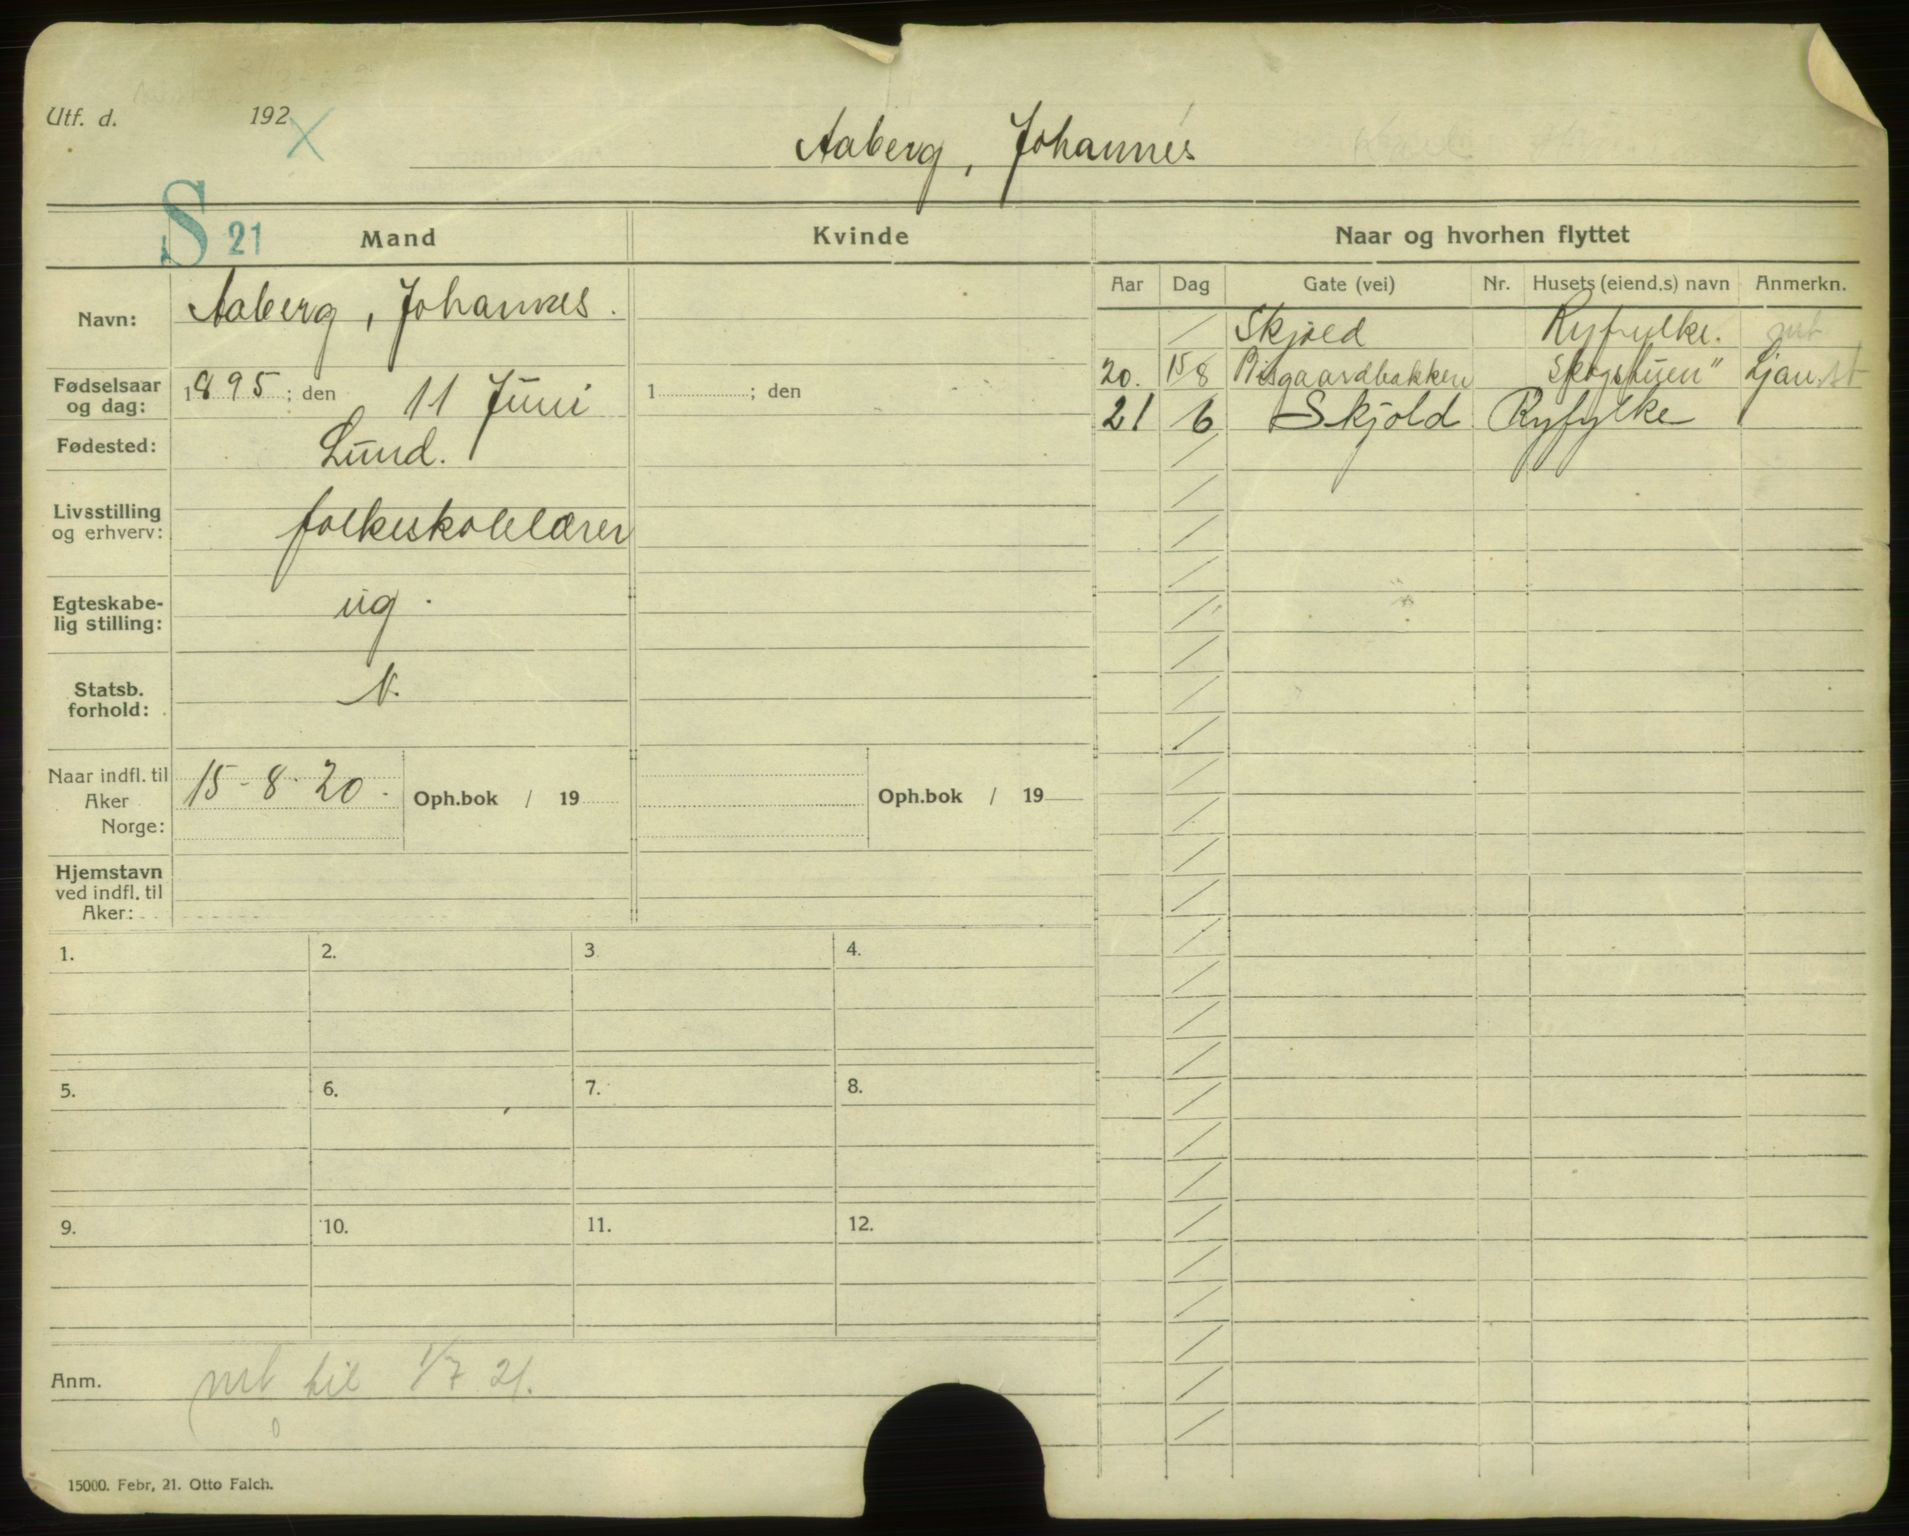 Utf. d. 192 X
Aaberg, Johannes
S 21
Mand
Kvinde
Naar og hvorhen flyttet
Aar Dag Gate (vei) Nr. Husets (eiend.s) navn Anmerkn.
/ Skjold Ryfylke. mt
20. 15/8 Bisgaardbakken "Skogstuen" Ljan st
21 6/ Skjold Ryfylke
Navn: Aaberg, Johannes.
Fødselsaar og dag: 1895; den 11 Juni
1 ; den
Fødested: Lund.
Livsstilling og erhverv: folkeskolelærer
Egteskabelig stilling: ug.
Statsb. forhold: N.
Naar indfl. til Aker Norge: 15-8-20. Oph.bok / 19
Oph.bok / 19
Hjemstavn ved indfl. til Aker:
1. 2. 3 4.
5. 6. 7. 8.
9. 10. 11. 12.
Anm. mt til 1/7 21.
15000. Febr, 21. Otto Falch.